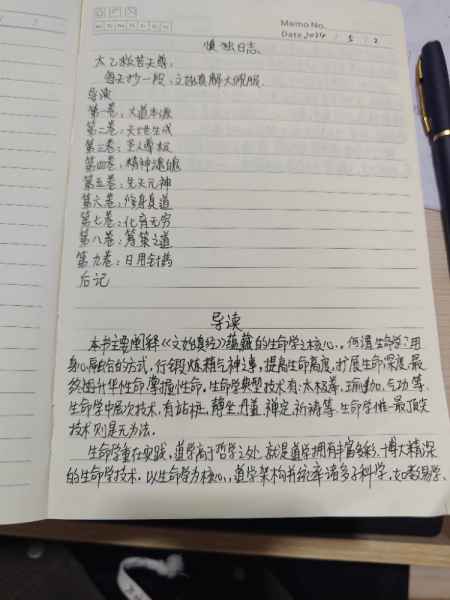 Memo No.
Date 2024 / 5 / 2
慎独日志
太乙救苦天尊:
每天抄一段,文始真解大佩服.
导演
第一卷:大道本源
第二卷:天地生成
第三卷:圣人尊权
第四卷:精神魂魄
第五卷:先天元神
第六卷:修身复道
第七卷:化育无穷
第八卷:筹策之道
第九卷:日用针药
后记
导读
本书主要阐释《文始真经》蕴藏的生命学之核心。何谓生命学?用
身心融合的方式,行锻炼精气神之事,提高生命高度,扩展生命深度,最
终提升华性命,掌握性命。生命学典型技术有:太极拳、瑜伽、气功等.
生命学中层次技术,有站桩、静坐、丹道、禅定、祈祷等.生命学唯一最顶尖
技术则是无为法。
生命学重在实践,道学高于哲学之处,就是道学拥有丰富多彩、博大精深
的生命学技术。以生命学为核心,道学架构并统率诸多子科学,如数易学、